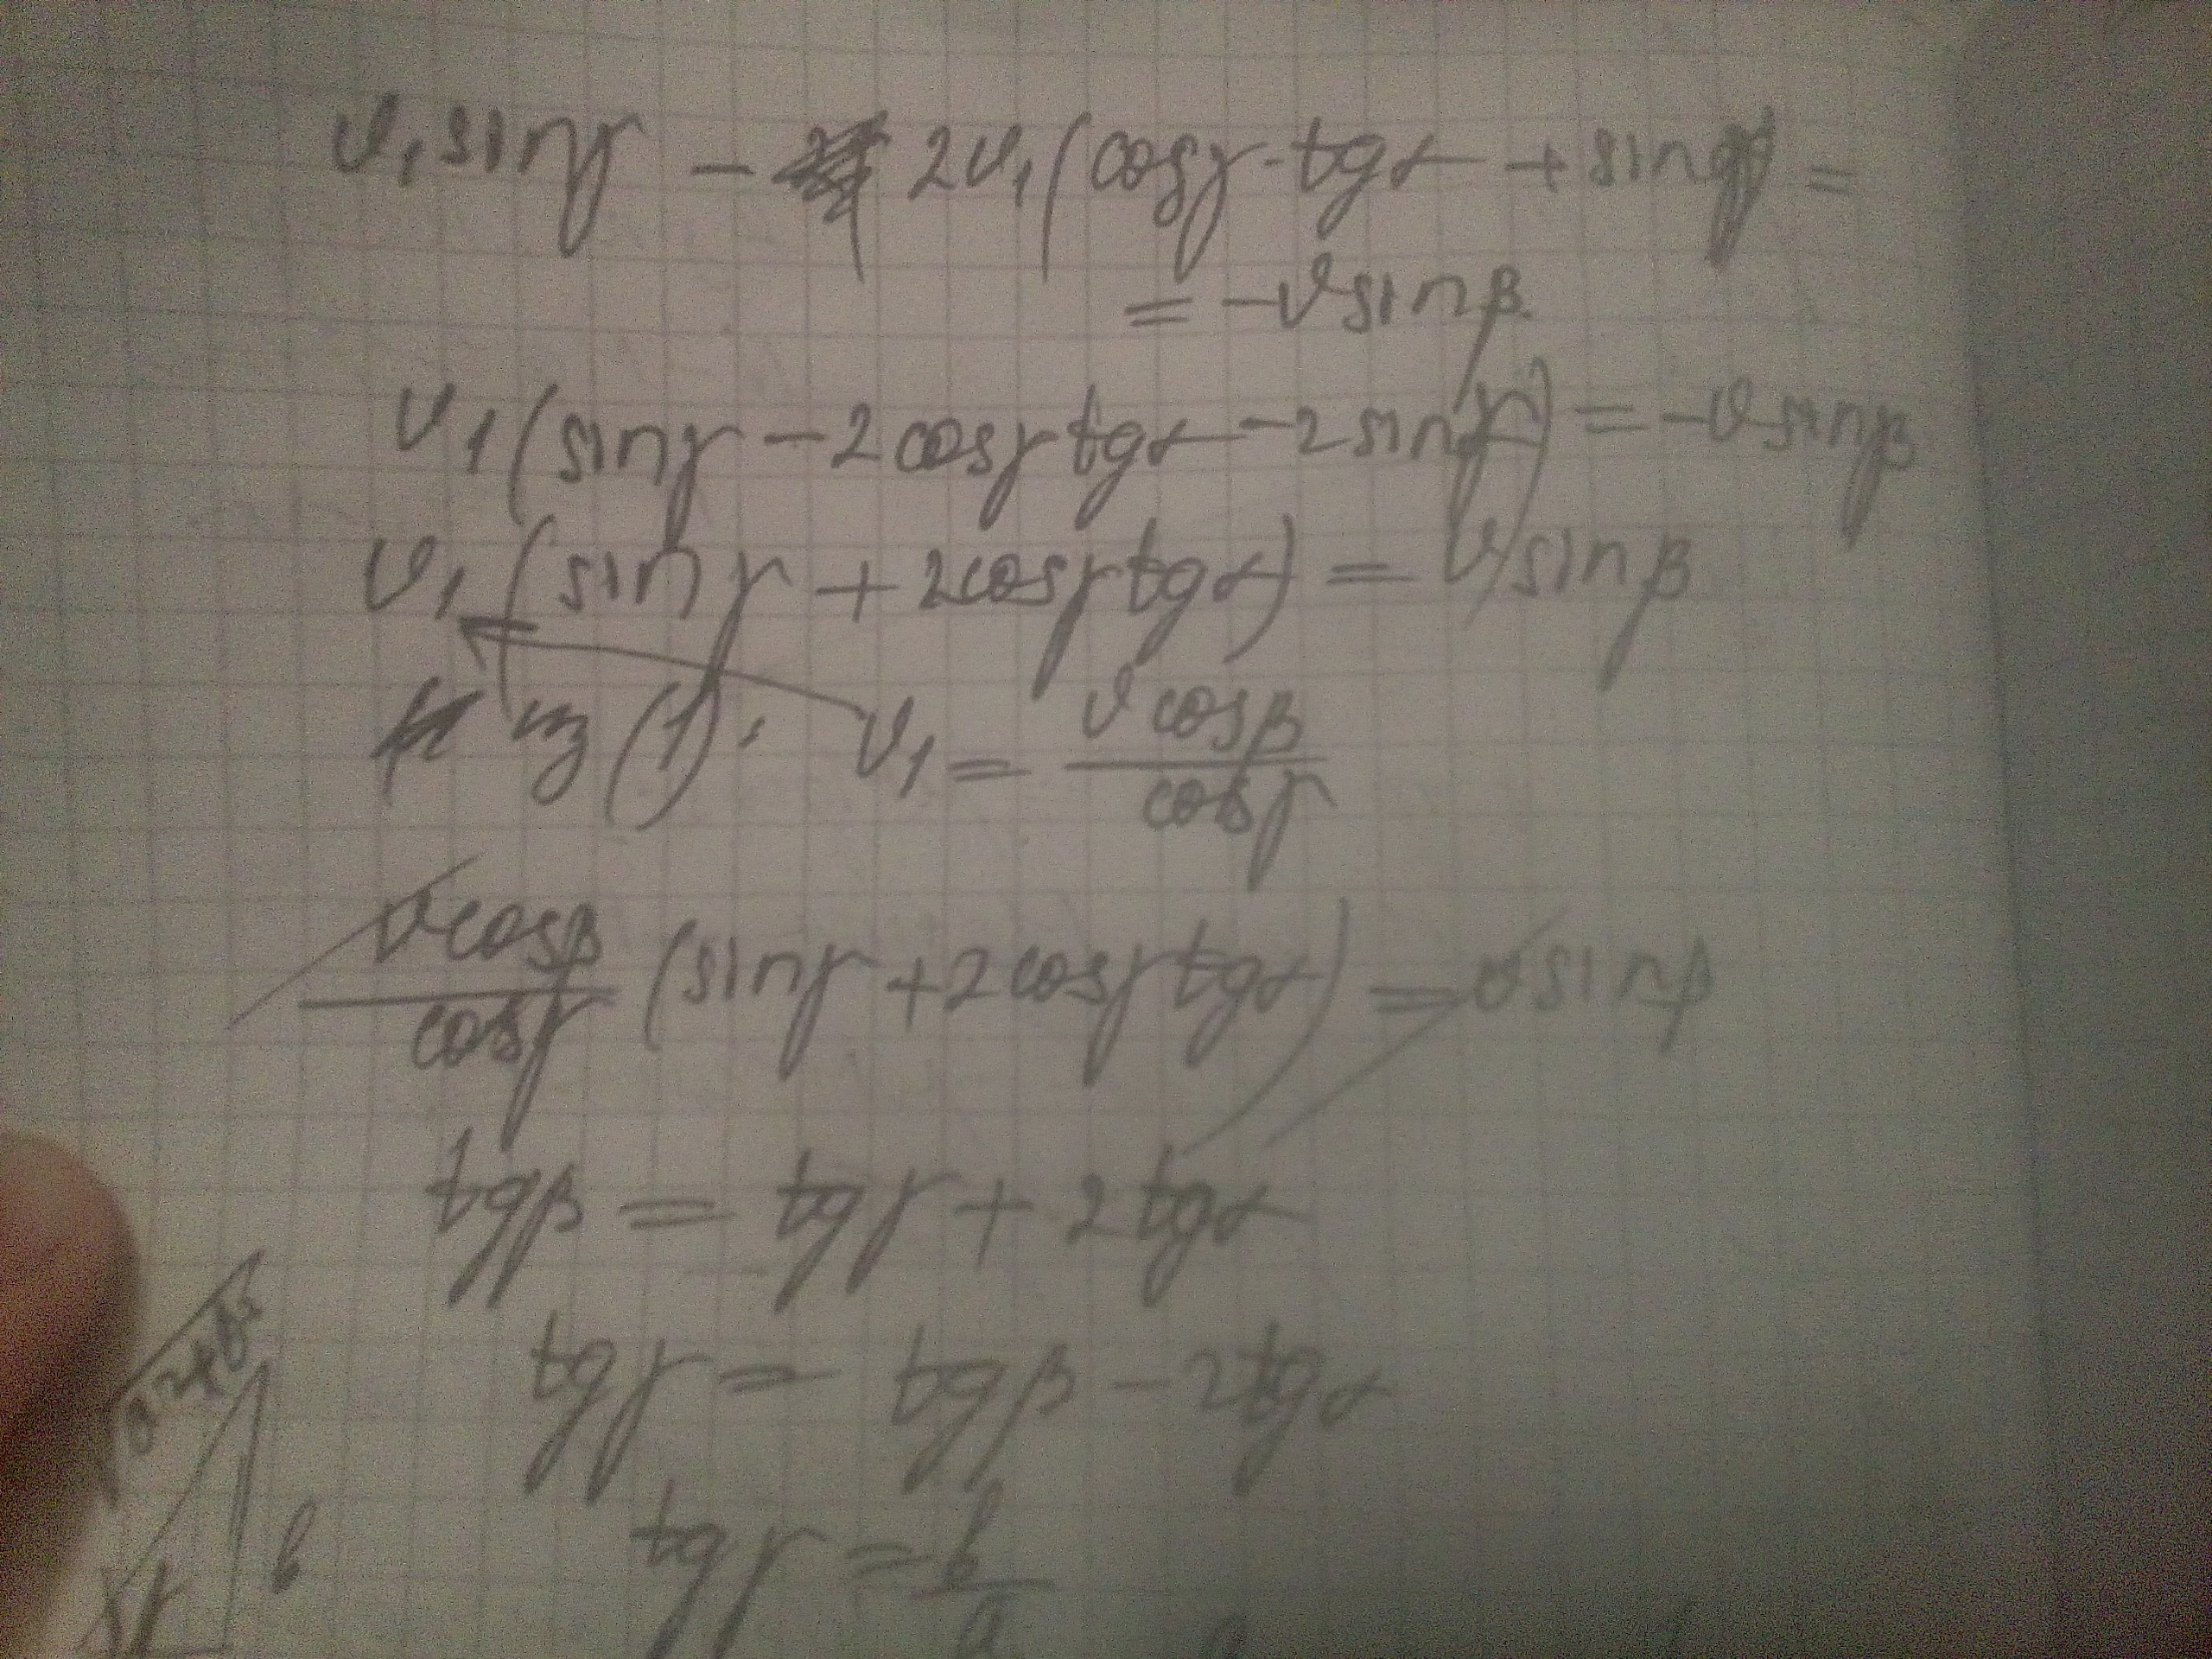 v₁ sinγ - 2v₁(cosγ·tgα + sinγ) =
= -v sinβ
v₁(sinγ - 2cosγ tgα - 2sinγ) = -v sinβ
v₁(sinγ + 2cosγ tgα) = v sinβ
из (1): v₁ = v cosβ / cosγ
v cosβ / cosγ (sinγ + 2cosγ tgα) = v sinβ
tgβ = tgγ + 2tgα
tgγ = tgβ - 2tgα
tgγ = b / a
√a²+b²
b
γ